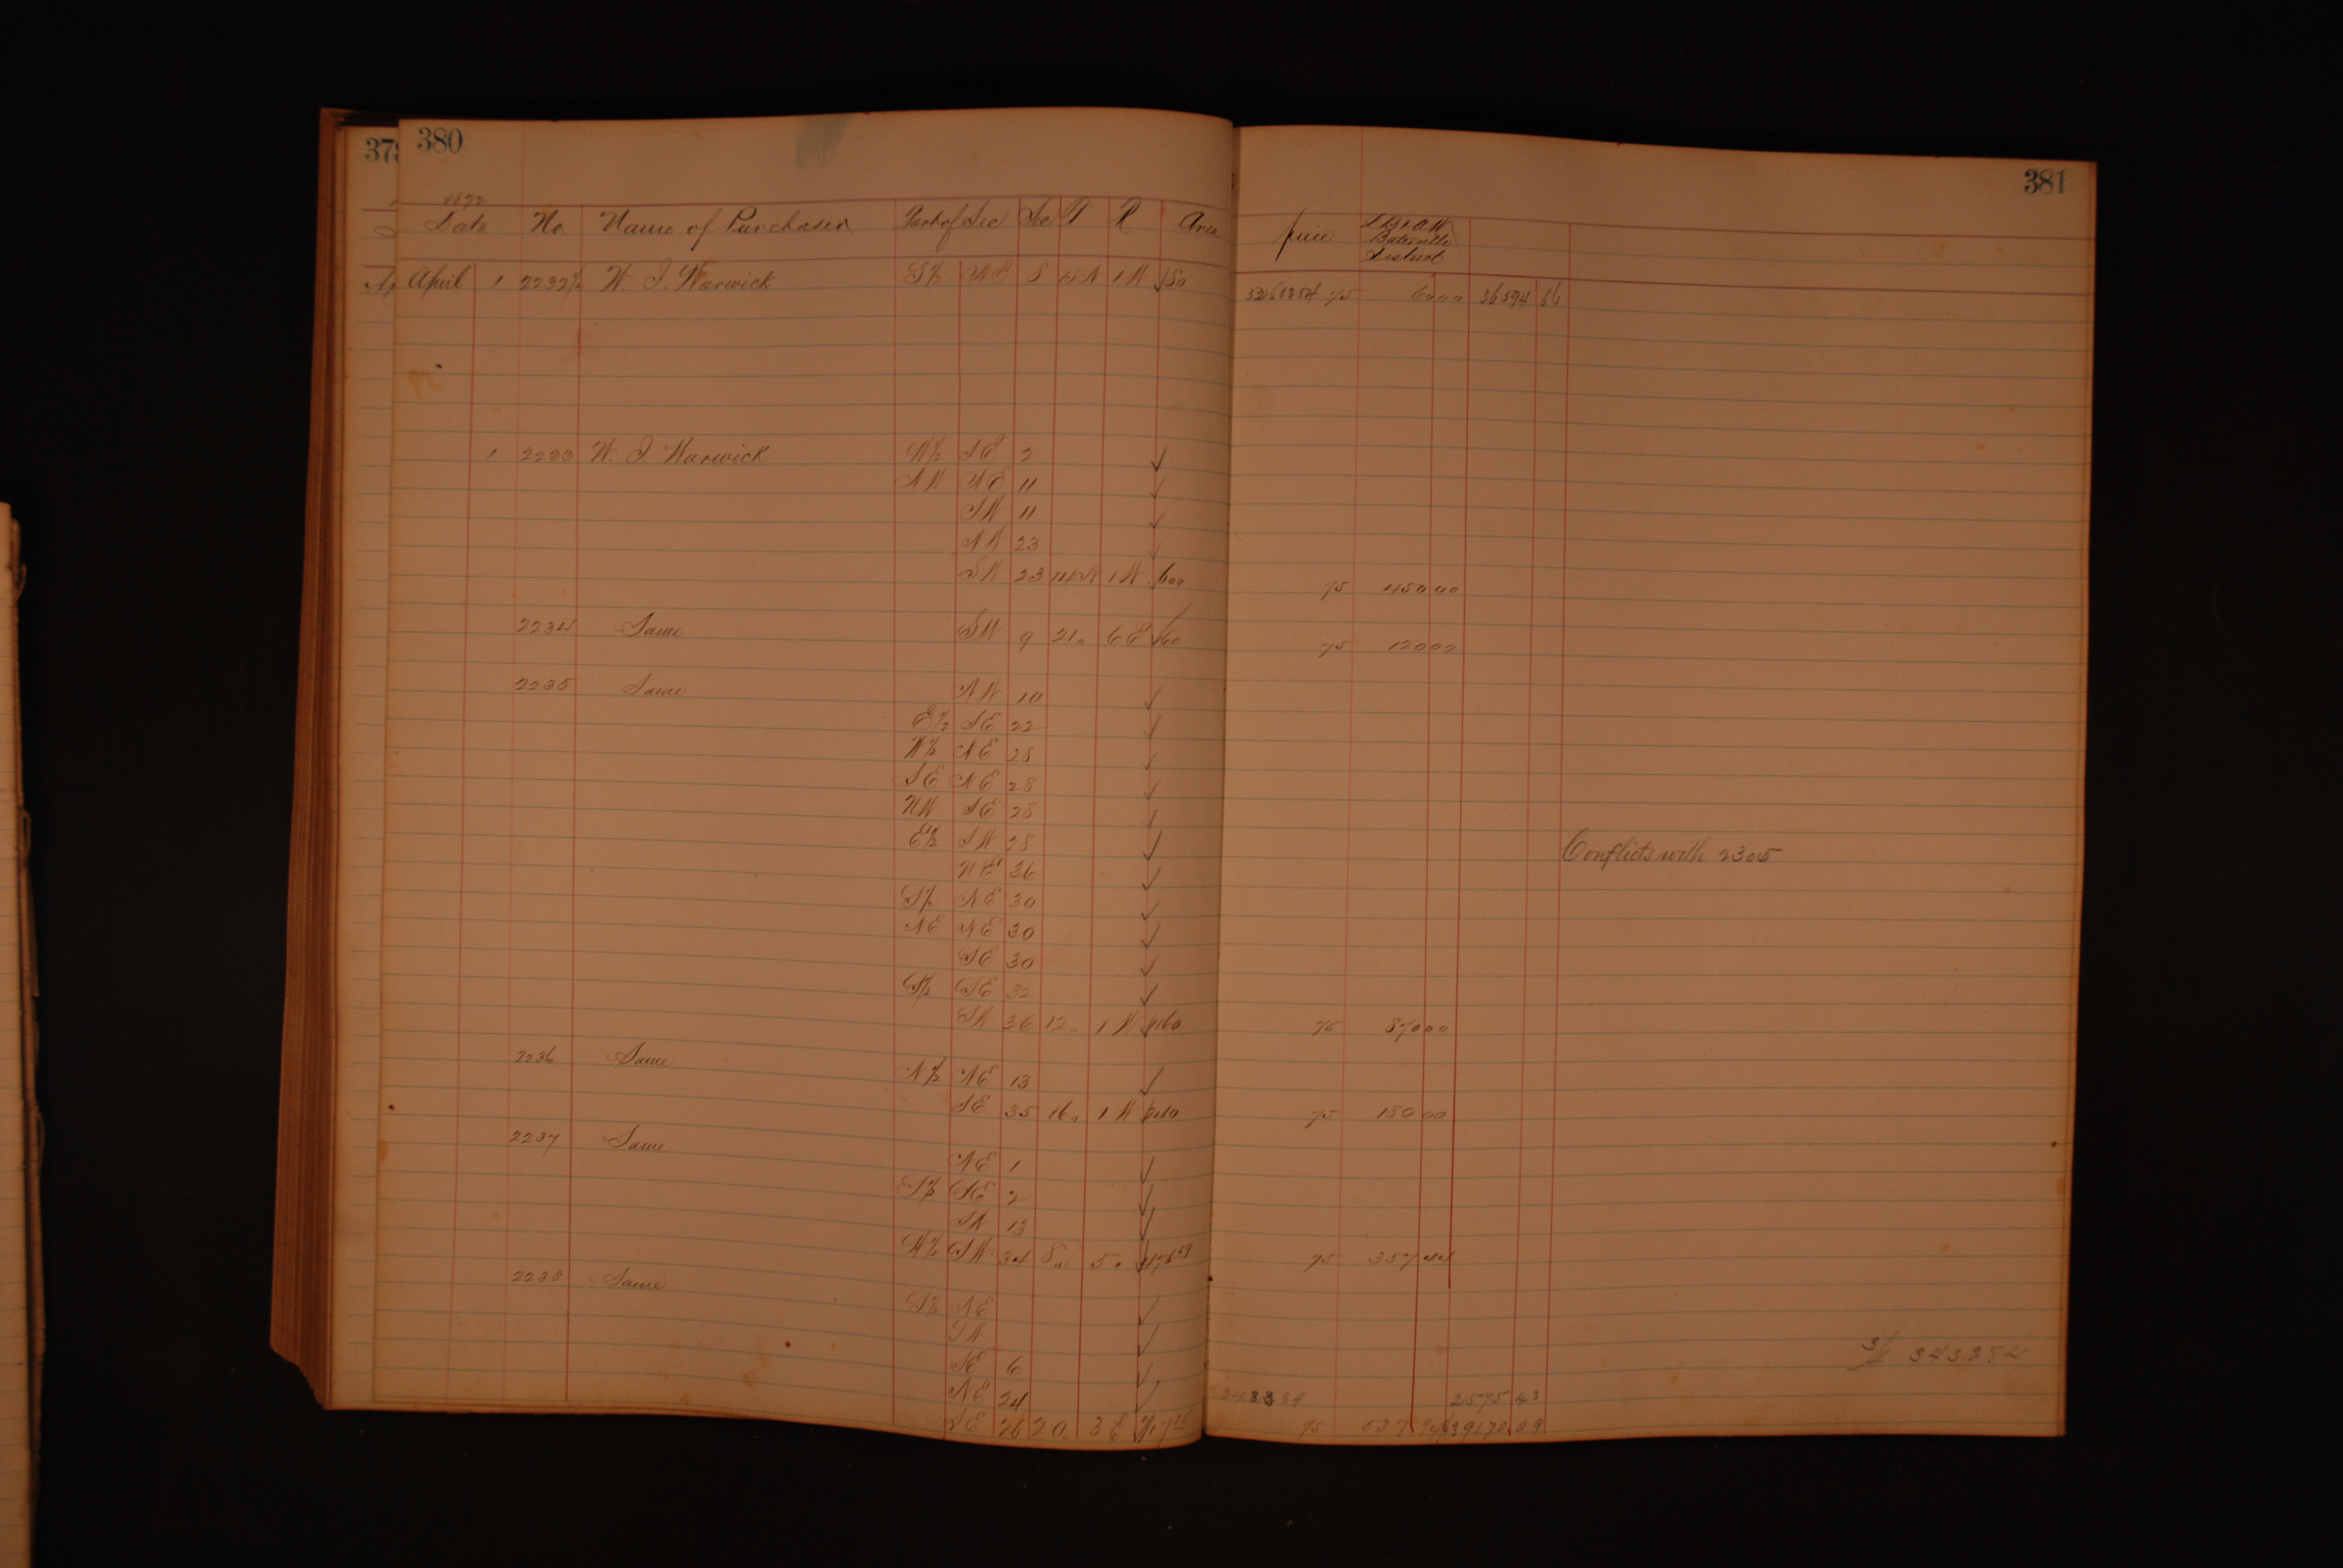 380
381
1872
Date No Name of Purchaser Part of Sec Sec T R Area price District
April 1 2232½ W. I. Warwick S½ NE 8 15N 1W 80 75 6000 36594 66
1 2233 W. I. Warwick W½ SE 2
NW NE 11
SW 11
NW 23
SW 23 14N 1W 600 75 450 00
2234 Same SW 9 21" 6E 160 75 120 00
2235 Same NW 10
E½ SE 22
W½ NE 28
SE NE 28
NW SE 28
E½ SW 28 Conflicts with 2305
NE 36
S½ NE 30
NE NE 30
SE 30
S½ SE 32
SW 36 12" 1W 1160 75 870 00
2236 Same
N½ NE 13
SE 35 16" 1W 240 75 180 00
2237 Same
NE 1
S½ SE 2
SW 13
W½ SW 34 8" 5" 476 59 75 357 44
2238 Same
S½ NE
SW
SE 6
NE 24 2575 43
SE 26 20" 3E 75 39170 09